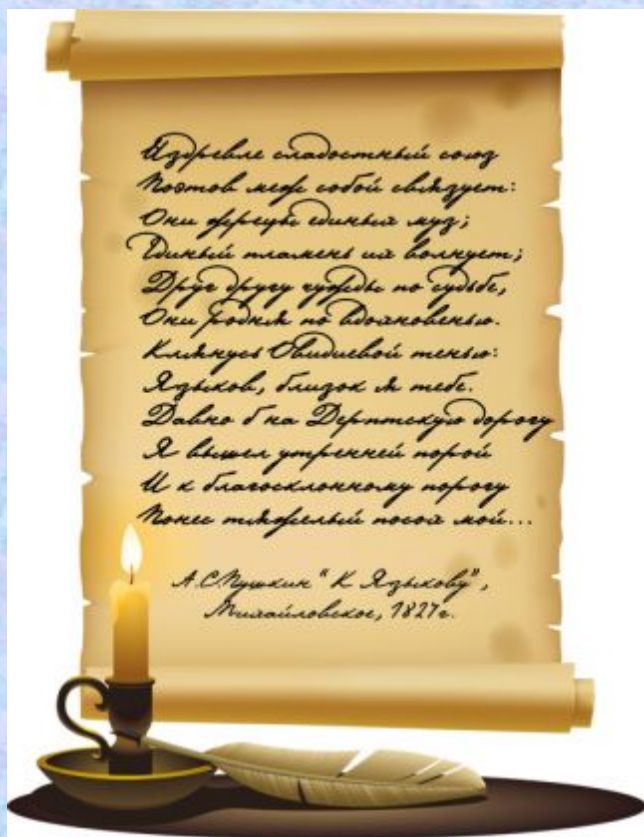 Издревле сладостный союз
Поэтов меж собой связует:
Они жрецы единых муз;
Единый пламень их волнует;
Друг другу чужды по судьбе,
Они родня по вдохновенью.
Клянусь Овидиевой тенью:
Языков, близок я тебе.
Давно б на Дерптскую дорогу
Я вышел утренней порой
И к благосклонному порогу
Понес тяжелый посох мой...
А.С.Пушкин "К Языкову",
Михайловское, 1827г.